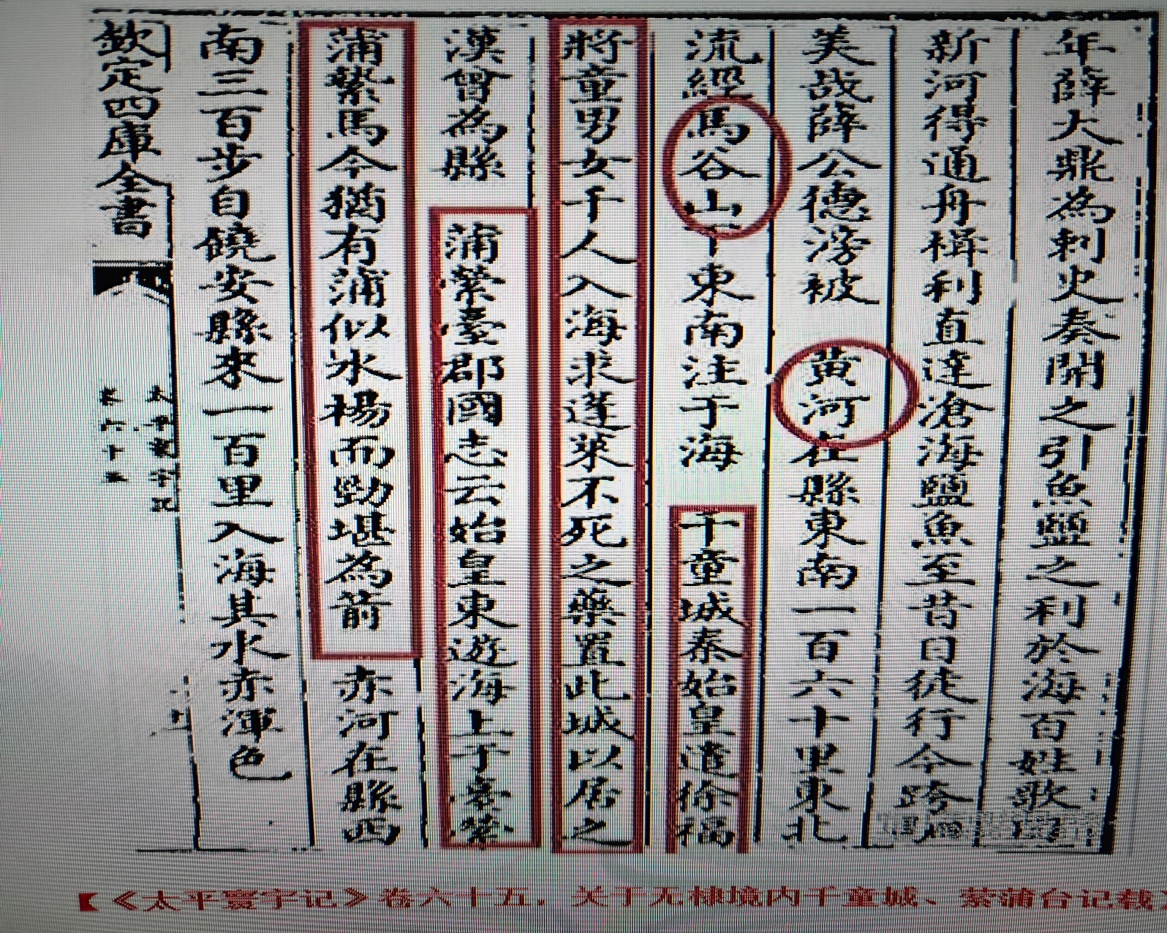 年薛大鼎為刺史奏開之引魚鹽之利於海百姓歌曰
新河得通舟楫利直達滄海鹽魚至昔日徒行今跨駟
美哉薛公德滂被 黄河在縣東南一百六十里東北
流經馬谷山下東南注于海 千童城秦始皇遣徐福
將童男女千人入海求蓬萊不死之藥置此城以居之
漢曾為縣 蒲縈臺郡國志云始皇東遊海上于臺縈
蒲縶馬今猶有蒲似水楊而勁堪為箭 赤河在縣西
南三百步自饒安縣來一百里入海其水赤渾色
欽定四庫全書
太平寰宇記
卷六十五
【《太平寰宇记》卷六十五，关于无棣境内千童城、萦蒲台记载